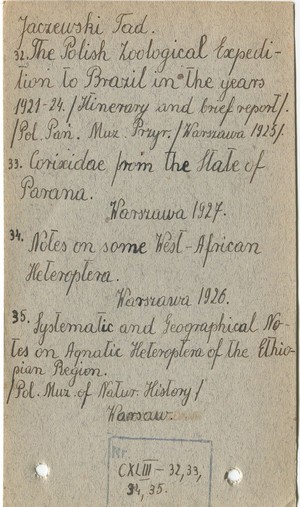 Jaczewski Tad.
32. The Polish Zoological Expedi-
tion to Brazil in the years
1921-24. /Itinerary and brief report/.
/Pol. Pań. Muz. Przyr./Warszawa 1925/.
33. Corixidae from the State of
Parana.
Warszawa 1927.
34. Notes on some West-African
Heteroptera.
Warszawa 1926.
35. Systematic and Geographical No-
tes on Aquatic Heteroptera of the Ethio-
pian Region.
/Pol. Muz. of Natur. History/
Warsaw.
Nr.
CXLIII - 32, 33,
34, 35.